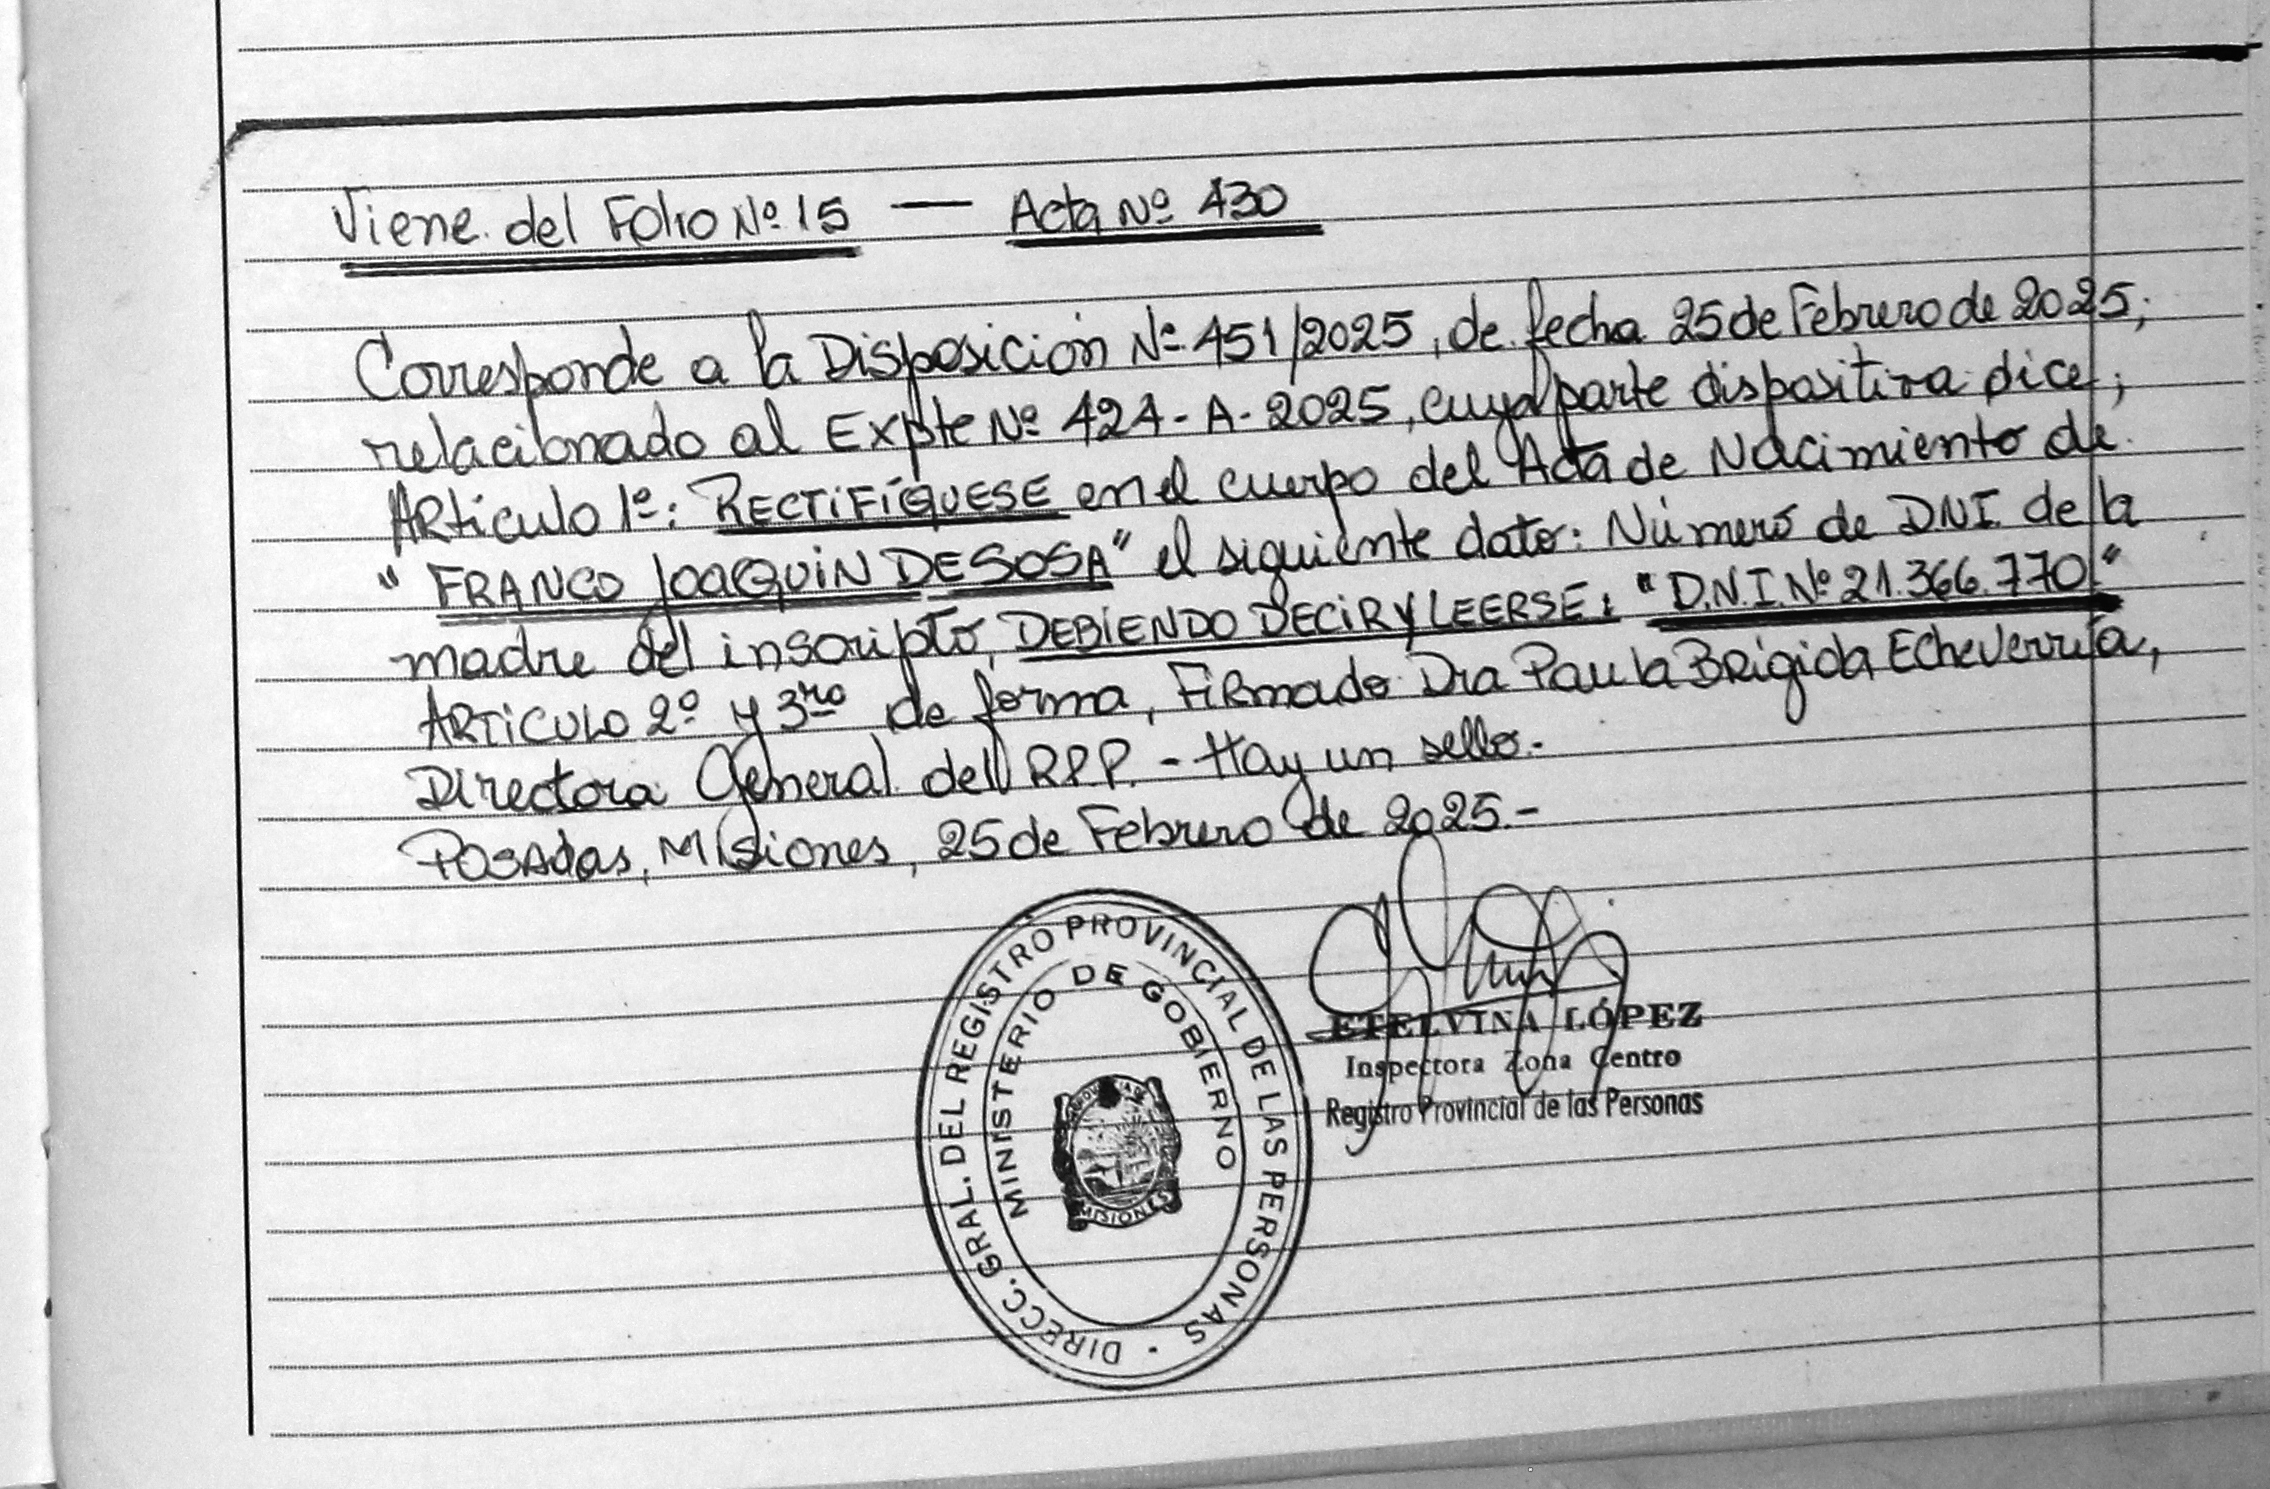 Viene del Folio Nº 15 — Acta Nº 430
Corresponde a la Disposición Nº 451/2025, de fecha 25 de Febrero de 2025;
relacionado al Expte Nº 424-A-2025, cuya parte dispositiva dice;
ARtículo 1º: RECTIFÍQUESE en el cuerpo del Acta de Nacimiento de
" FRANCO JOAQUIN DE SOSA" el siguiente dato: Número de DNI de la
madre del inscripto, DEBIENDO DECIR Y LEERSE: "D.N.I. Nº 21.366.770."
ARTICULO 2º y 3ro de forma, Firmado Dra Paula Brígida Echeverría,
Directora General del RPP. - Hay un sello.-
POSAdas, Misiones, 25 de Febrero de 2025.-
DIRECC. GRAL. DEL REGISTRO PROVINCIAL DE LAS PERSONAS
MINISTERIO DE GOBIERNO
MISIONES
ETELVINA LÓPEZ
Inspectora Zona Centro
Registro Provincial de las Personas